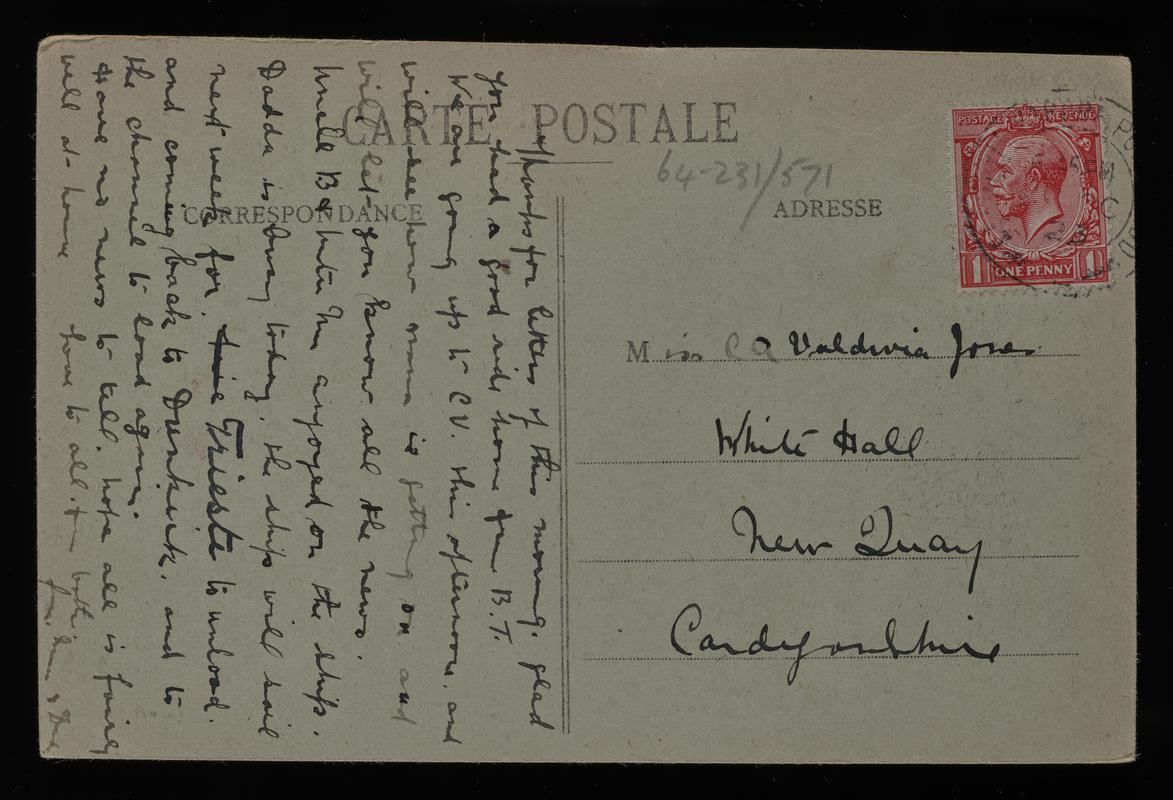 CARTE POSTALE
64-231/571
CORRESPONDANCE
ADRESSE
POSTAGE REVENUE
1 ONE PENNY 1
Miss CA Valdivia Jones
White Hall
New Quay
Cardiganshire
for letter of this morning. glad
you had a good ride home from B.T.
We are going up to CV. this afternoon. and
will see how mama is getting on and
will let you know all the news.
Uncle B & Auntie M enjoyed on the ship.
Dadda is busy today. the ship will sail
next week for Trieste to unload.
and coming back to Dunkirk. and to
the channel to load again.
Have no news to tell. hope all is fairly
well at home love to all. from both